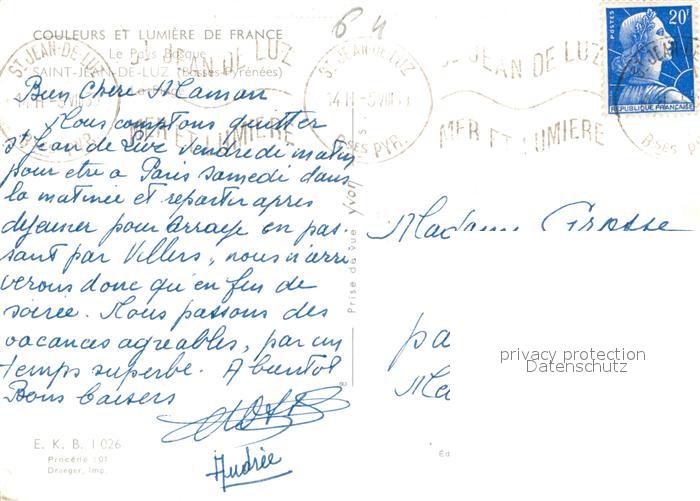 64
COULEURS ET LUMIÈRE DE FRANCE
Le Pays Basque
SAINT-JEAN-DE-LUZ (Basses-Pyrénées)
ST JEAN-DE-LUZ
14 H -5 VIII
Bses PYR.
ST JEAN DE LUZ
MER ET LUMIERE
ST JEAN-DE-LUZ
14 H -5 VIII
Bses PYR.
ST JEAN DE LUZ
MER ET LUMIERE
POSTES
20F
RÉPUBLIQUE FRANÇAISE
Bien Chère Maman
Nous comptons quitter
St Jean de Luz vendredi matin
pour etre à Paris samedi dans
la matinée et repartir apres
dejeuner pour Arraye en pas-
sant par Villers, nous n'arri
verons donc qu'en fin de
soirée. Nous passons des
vacances agreables, par un
temps superbe. A bientot
Bons baisers
Andrée
Prise de vue Yvon
Madame Grosse
pa
Ma
privacy protection
Datenschutz
E. K. B. 1026
Procédé 301
Draeger, Imp.
Éd